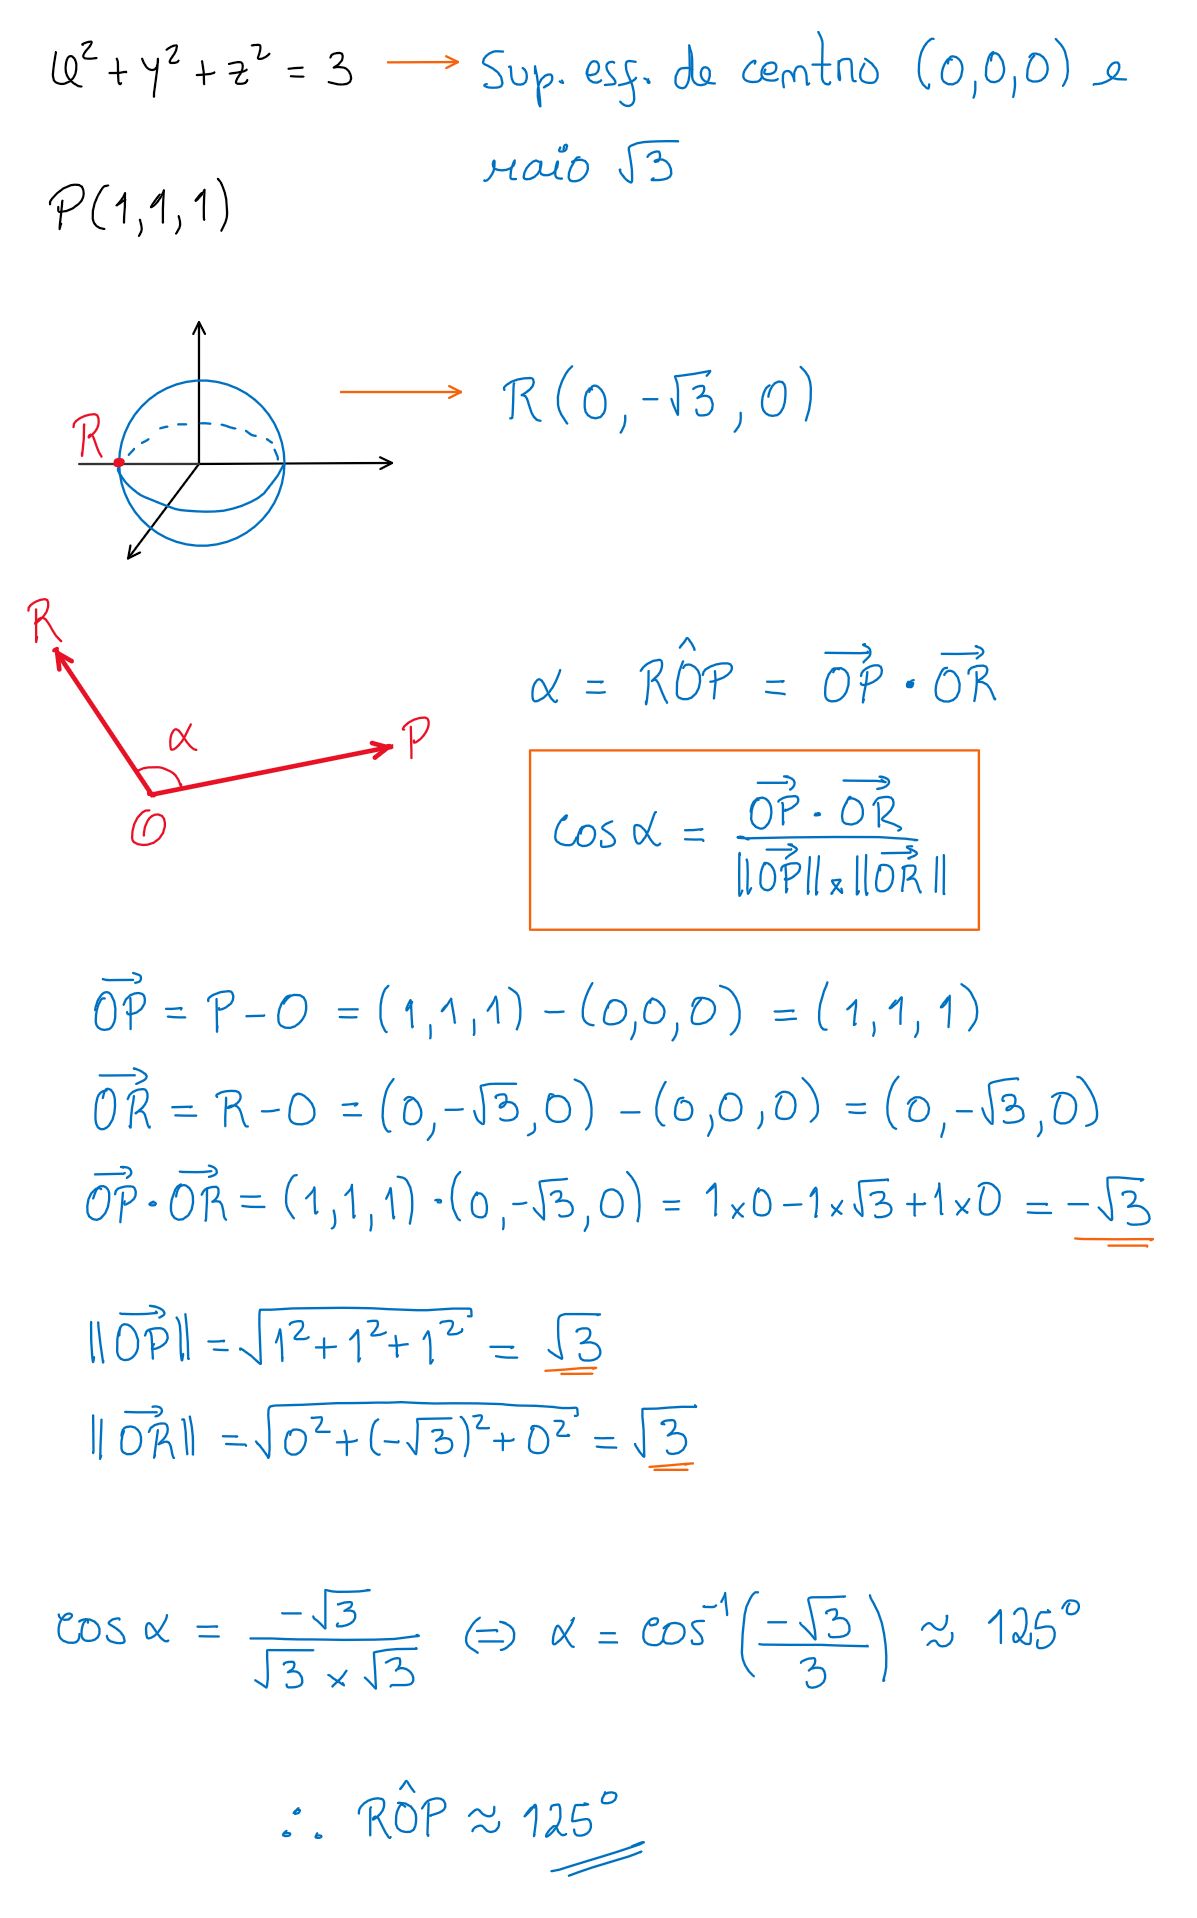 x² + y² + z² = 3 → Sup. esf. de centro (0,0,0) e
raio √3
P(1,1,1)
R
→ R(0,-√3,0)
R
α
P
O
α = RÔP = OP⃗ · OR⃗
cos α = (OP⃗ · OR⃗) / (||OP⃗|| × ||OR⃗||)
OP⃗ = P - O = (1,1,1) - (0,0,0) = (1,1,1)
OR⃗ = R - O = (0,-√3,0) - (0,0,0) = (0,-√3,0)
OP⃗ · OR⃗ = (1,1,1) · (0,-√3,0) = 1×0 - 1×√3 + 1×0 = -√3
||OP⃗|| = √(1² + 1² + 1²) = √3
||OR⃗|| = √(0² + (-√3)² + 0²) = √3
cos α = -√3 / (√3 × √3) (=) α = cos⁻¹(-√3 / 3) ≈ 125°
∴ RÔP ≈ 125°